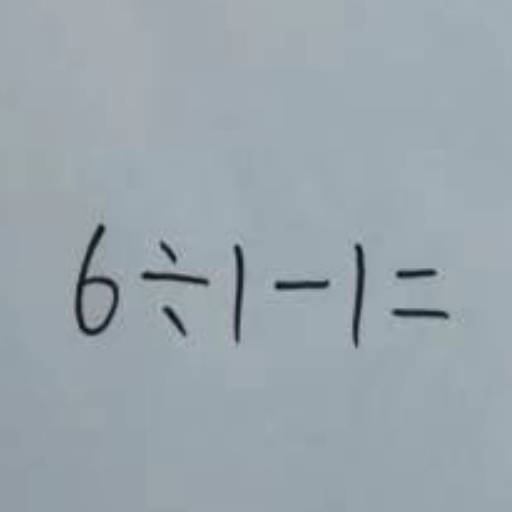 6÷1-1=